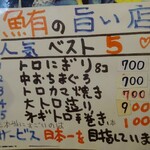 鮪の旨い店
人気ベスト5
トロにぎり8コ 700
中おちまぐろ 700
トロカマ焼き 700
4 大トロ造り 900
5 ネギトロ手巻き 100
サービス日本一を目指しています